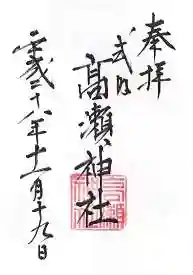 奉拝
式内
高瀬神社
平成二十八年十一月十九日